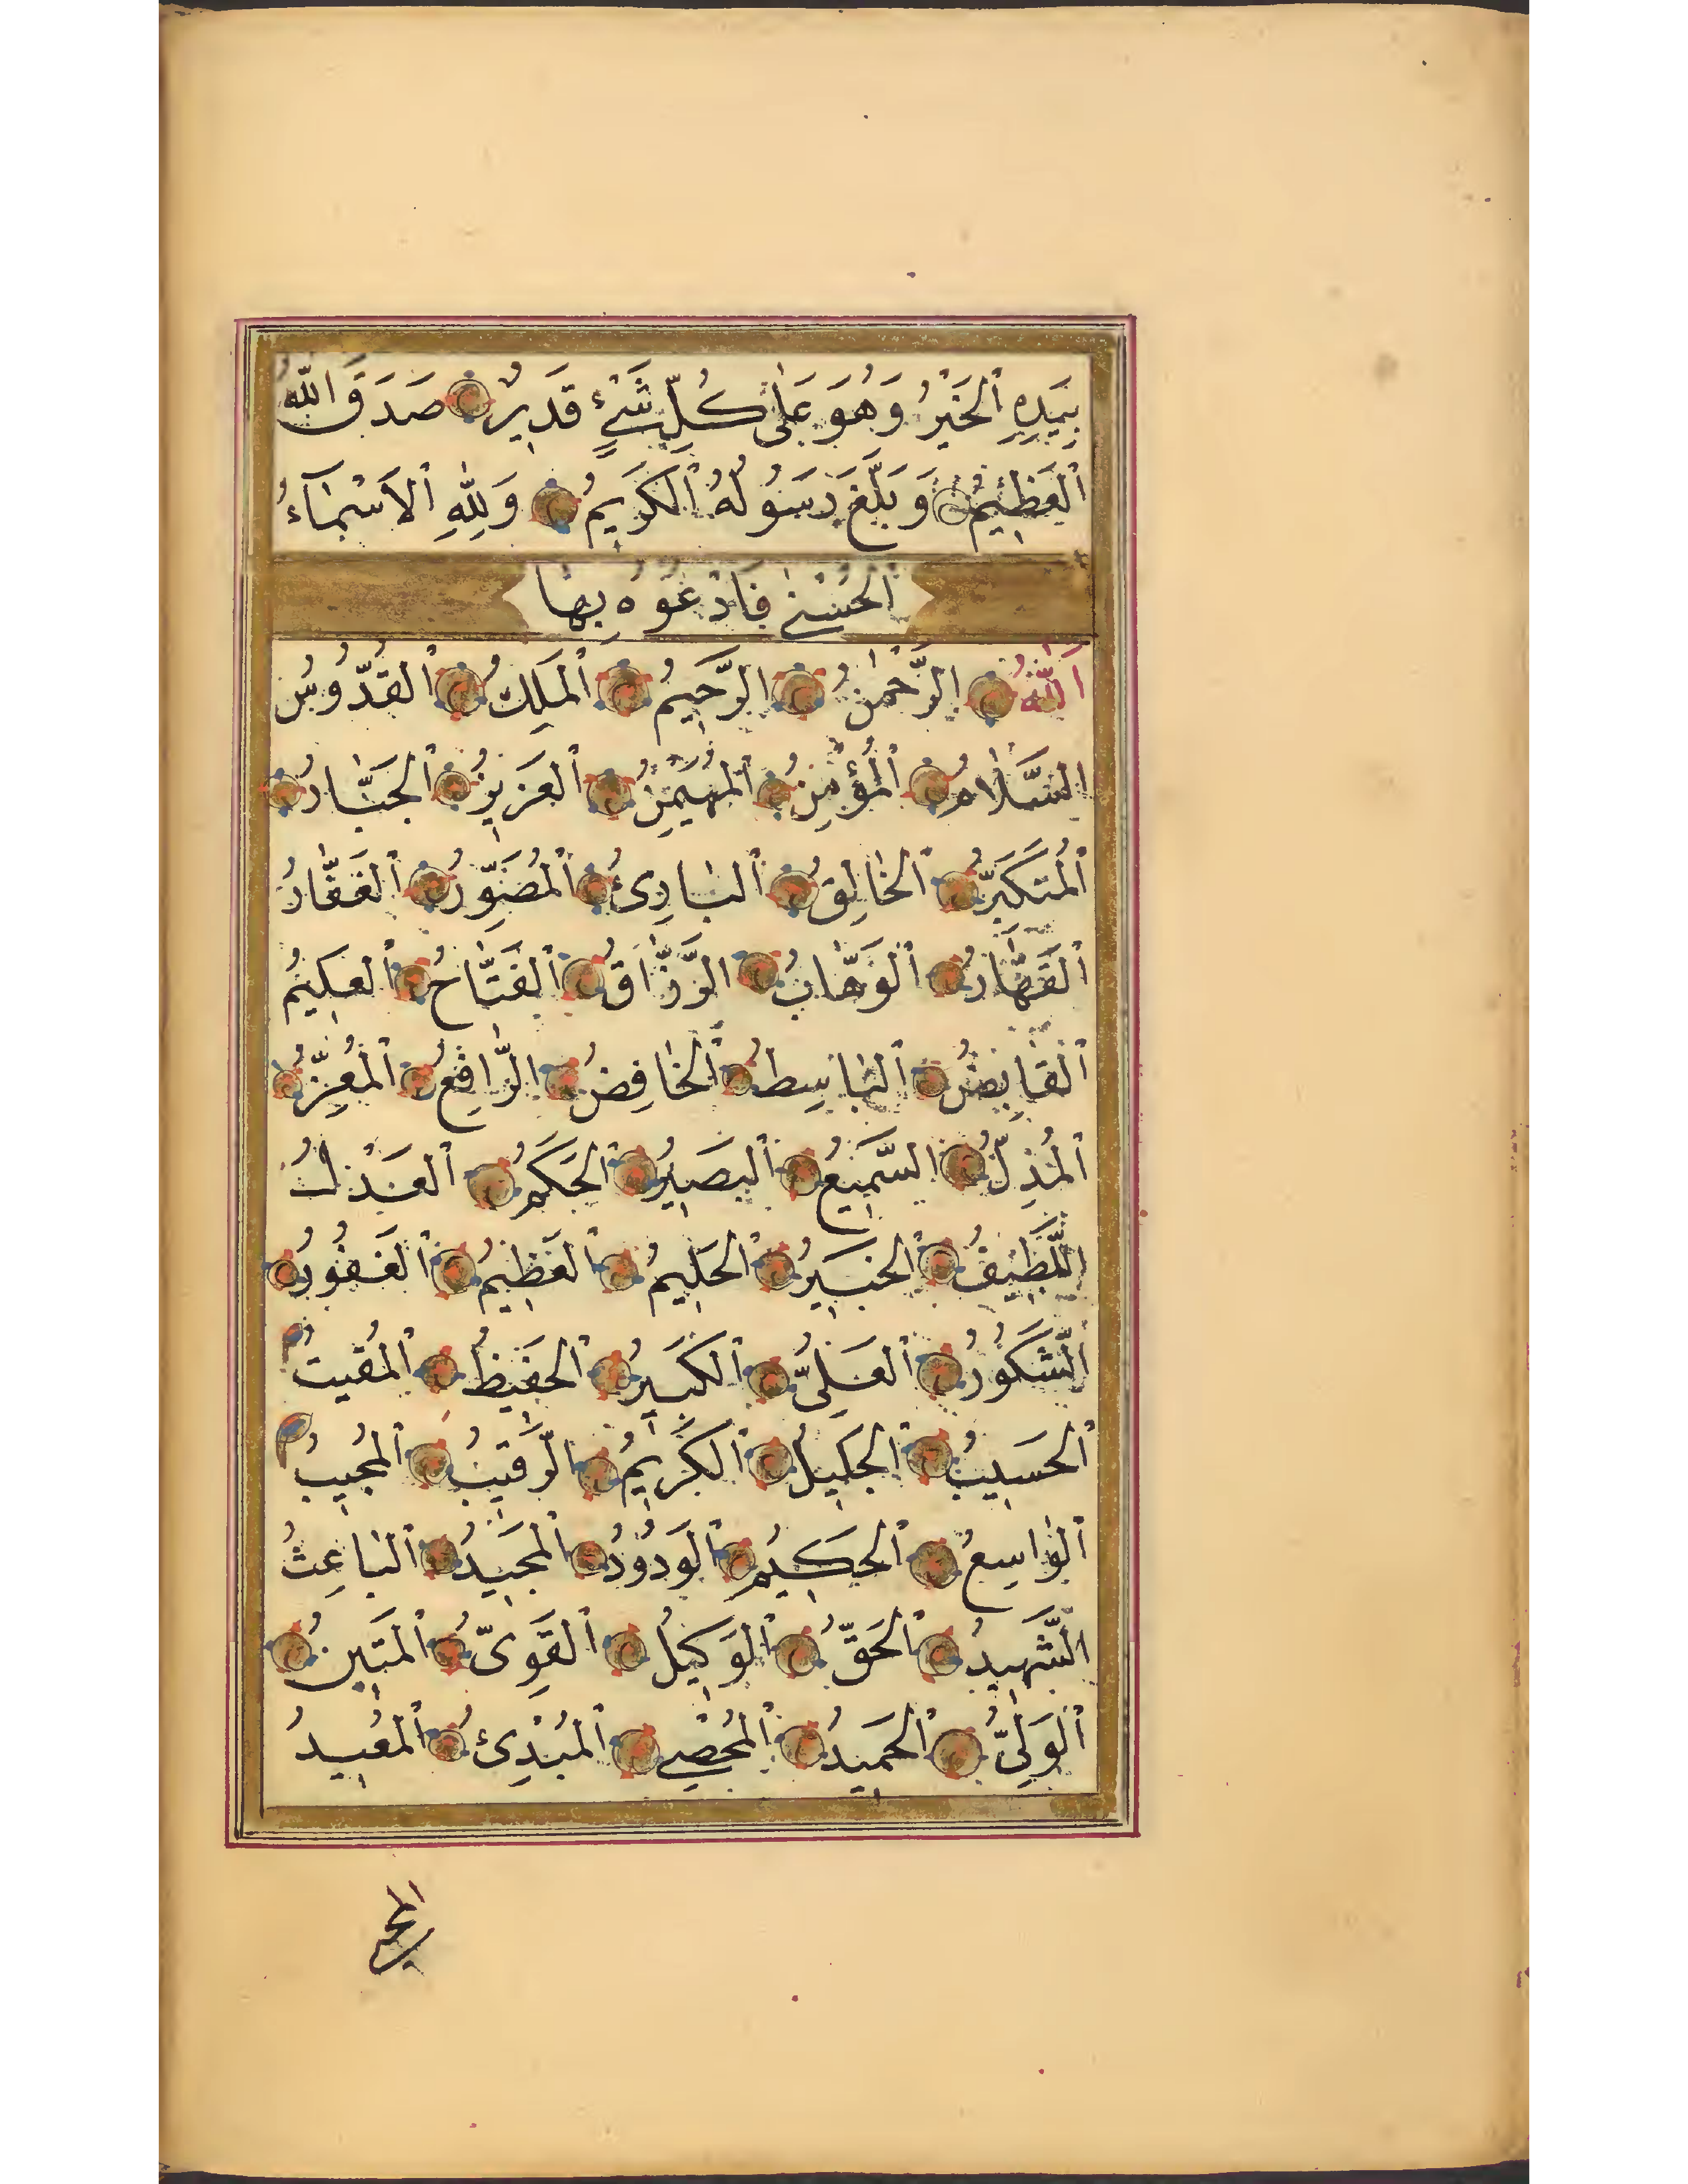 بِيَدِهِ ٱلْخَيْرُ وَهُوَ عَلٰى كُلِّ شَيْءٍ قَدِيرٌ صَدَقَ اللّٰهُ
ٱلْعَظِيمُ وَبَلَّغَ رَسُولُهُ ٱلْكَرِيمُ وَلِلّٰهِ ٱلْاَسْمَآءُ
ٱلْحُسْنٰى فَادْعُوهُ بِهَا
اَللّٰهُ الرَّحْمٰنُ الرَّحِيمُ ٱلْمَلِكُ ٱلْقُدُّوسُ
السَّلَامُ ٱلْمُؤْمِنُ ٱلْمُهَيْمِنُ ٱلْعَزِيزُ ٱلْجَبَّارُ
ٱلْمُتَكَبِّرُ ٱلْخَالِقُ ٱلْبَارِئُ ٱلْمُصَوِّرُ ٱلْغَفَّارُ
ٱلْقَهَّارُ ٱلْوَهَّابُ الرَّزَّاقُ ٱلْفَتَّاحُ ٱلْعَلِيمُ
ٱلْقَابِضُ ٱلْبَاسِطُ ٱلْخَافِضُ الرَّافِعُ ٱلْمُعِزُّ
ٱلْمُذِلُّ السَّمِيعُ ٱلْبَصِيرُ ٱلْحَكَمُ ٱلْعَدْلُ
اللَّطِيفُ ٱلْخَبِيرُ ٱلْحَلِيمُ ٱلْعَظِيمُ ٱلْغَفُورُ
الشَّكُورُ ٱلْعَلِيُّ ٱلْكَبِيرُ ٱلْحَفِيظُ ٱلْمُقِيتُ
ٱلْحَسِيبُ ٱلْجَلِيلُ ٱلْكَرِيمُ الرَّقِيبُ ٱلْمُجِيبُ
ٱلْوَاسِعُ ٱلْحَكِيمُ ٱلْوَدُودُ ٱلْمَجِيدُ ٱلْبَاعِثُ
الشَّهِيدُ ٱلْحَقُّ ٱلْوَكِيلُ ٱلْقَوِىُّ ٱلْمَتِينُ
ٱلْوَلِىُّ ٱلْحَمِيدُ ٱلْمُحْصِي ٱلْمُبْدِئُ ٱلْمُعِيدُ